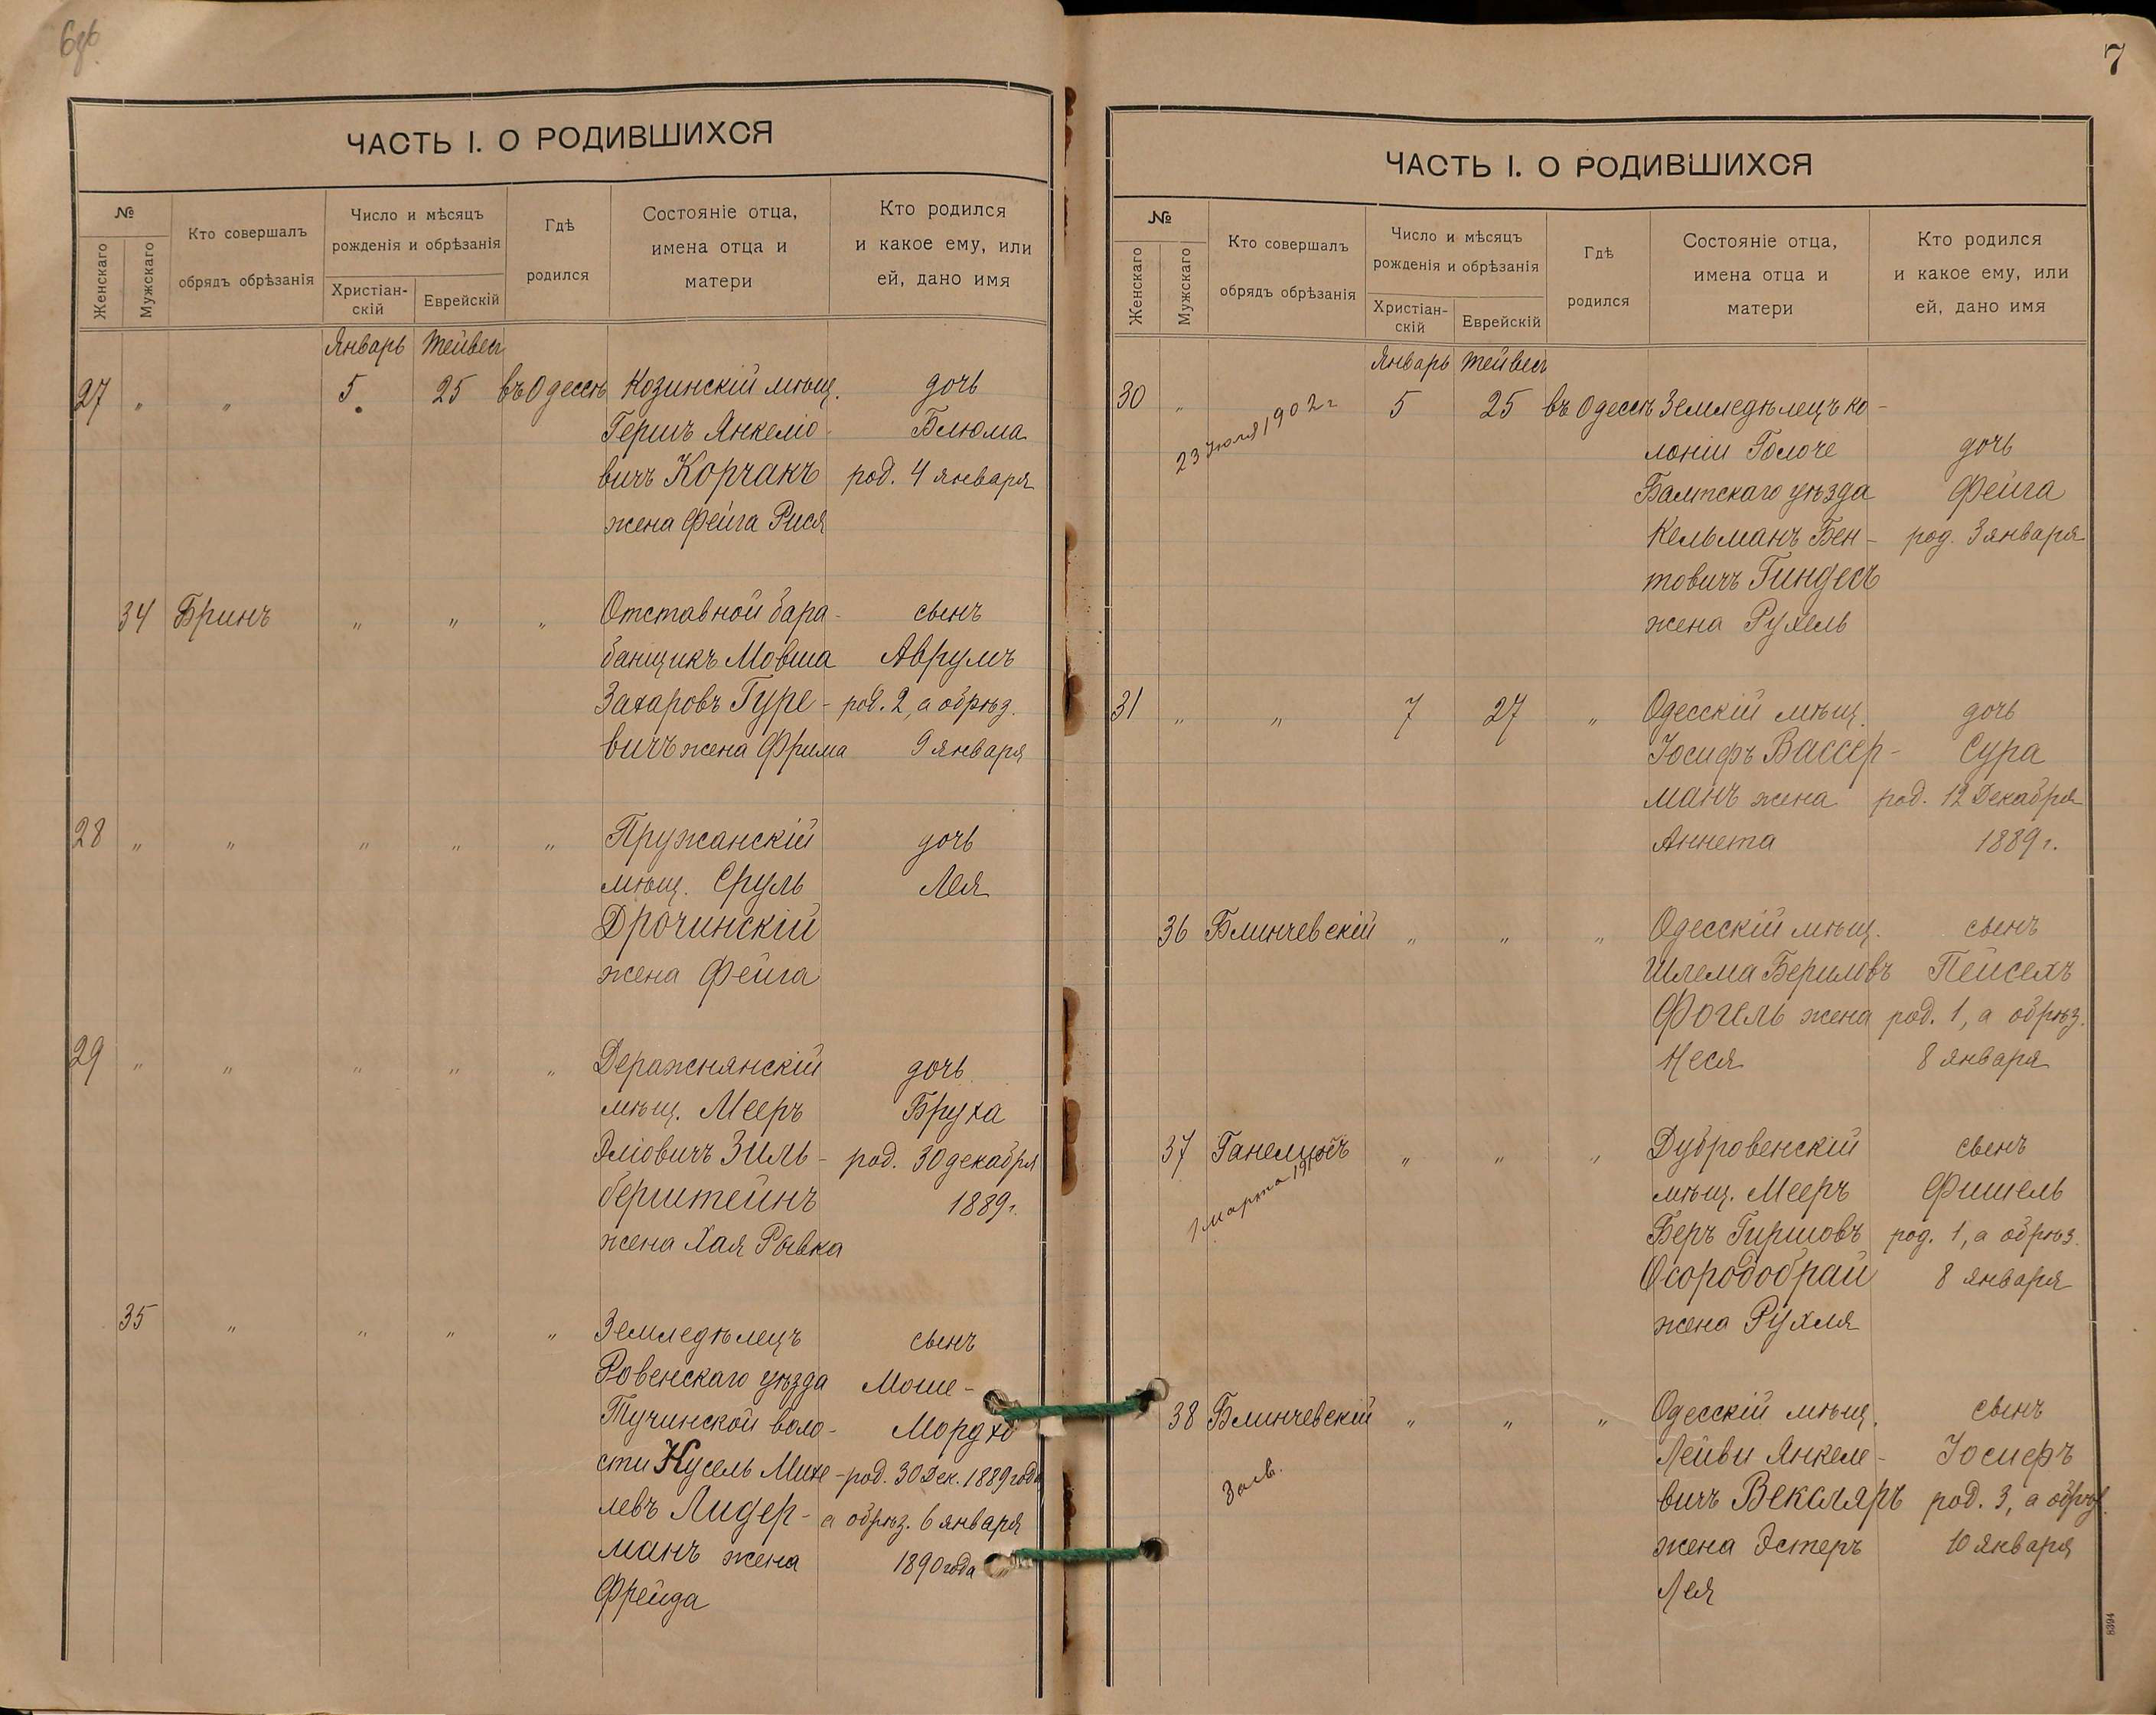 6об
ЧАСТЬ I. О РОДИВШИХСЯ
№
Женскаго
Мужскаго
Кто совершалъ
обрядъ обрѣзанія
Число и мѣсяцъ
рожденія и обрѣзанія
Христіан-
скій
Еврейскій
Гдѣ
родился
Состояніе отца,
имена отца и
матери
Кто родился
и какое ему, или
ей, дано имя
Январь Тейвесъ
27 " " 5 25 въ Одессѣ Козинскій мѣщ. дочь
Гершъ Янкеліо- Блюма
вичъ Корчакъ род. 4 января
жена Фейга Рися
34 Бринъ " " " Отставной бара- сынъ
банщикъ Мовша Аврумъ
Захаровъ Гуре- род. 2, а обрѣз.
вичъ жена Фрима 9 января
28 " " " " " Пружанскій дочь
мѣщ. Сруль Лея
Дрочинскій
жена Фейга
29 " " " " " Деражнянскій дочь
мѣщ. Мееръ Бруха
Эліовичъ Зиль- род. 30 декабря
берштейнъ 1889 г.
жена Хая Рывка
35 " " " " Земледѣлецъ сынъ
Ровенскаго уѣзда Моше-
Тучинской воло- Мордхо
сти Кусель Михе- род. 30 Дек. 1889 года
левъ Лидер- а обрѣз. 6 января
манъ жена 1890 года
Фрейда
7
ЧАСТЬ I. О РОДИВШИХСЯ
№
Женскаго
Мужскаго
Кто совершалъ
обрядъ обрѣзанія
Число и мѣсяцъ
рожденія и обрѣзанія
Христіан-
скій
Еврейскій
Гдѣ
родился
Состояніе отца,
имена отца и
матери
Кто родился
и какое ему, или
ей, дано имя
Январь Тейвесъ
30 " 23 Июля 1902 г 5 25 въ Одессѣ Земледѣлецъ ко-
лоніи Голоче дочь
Балтскаго уѣзда Фейга
Кельманъ Бен- род. 3 января
товичъ Гиндесъ
жена Рухель
31 " " 7 27 " Одесскій мѣщ. дочь
Іосифъ Вассер- Сура
манъ жена род. 12 Декабря
Аннета 1889 г.
36 Блинчевскій " " " Одесскій мѣщ. сынъ
Шлема Бериловъ Пейсехъ
Фогель жена род. 1, а обрѣз.
Неся 8 января
37 Ганелисъ " " " Дубровенскій сынъ
1 марта мѣщ. Мееръ Фишель
Беръ Гиршовъ род. 1, а обрѣз.
8 января
жена Рухля
38 Блинчевскій " " " Одесскій мѣщ. сынъ
Лейви Янкеле- Іосиеръ
вичъ Векслярь род. 3, а обрѣз.
жена Эстеръ 10 января
Лея
8394